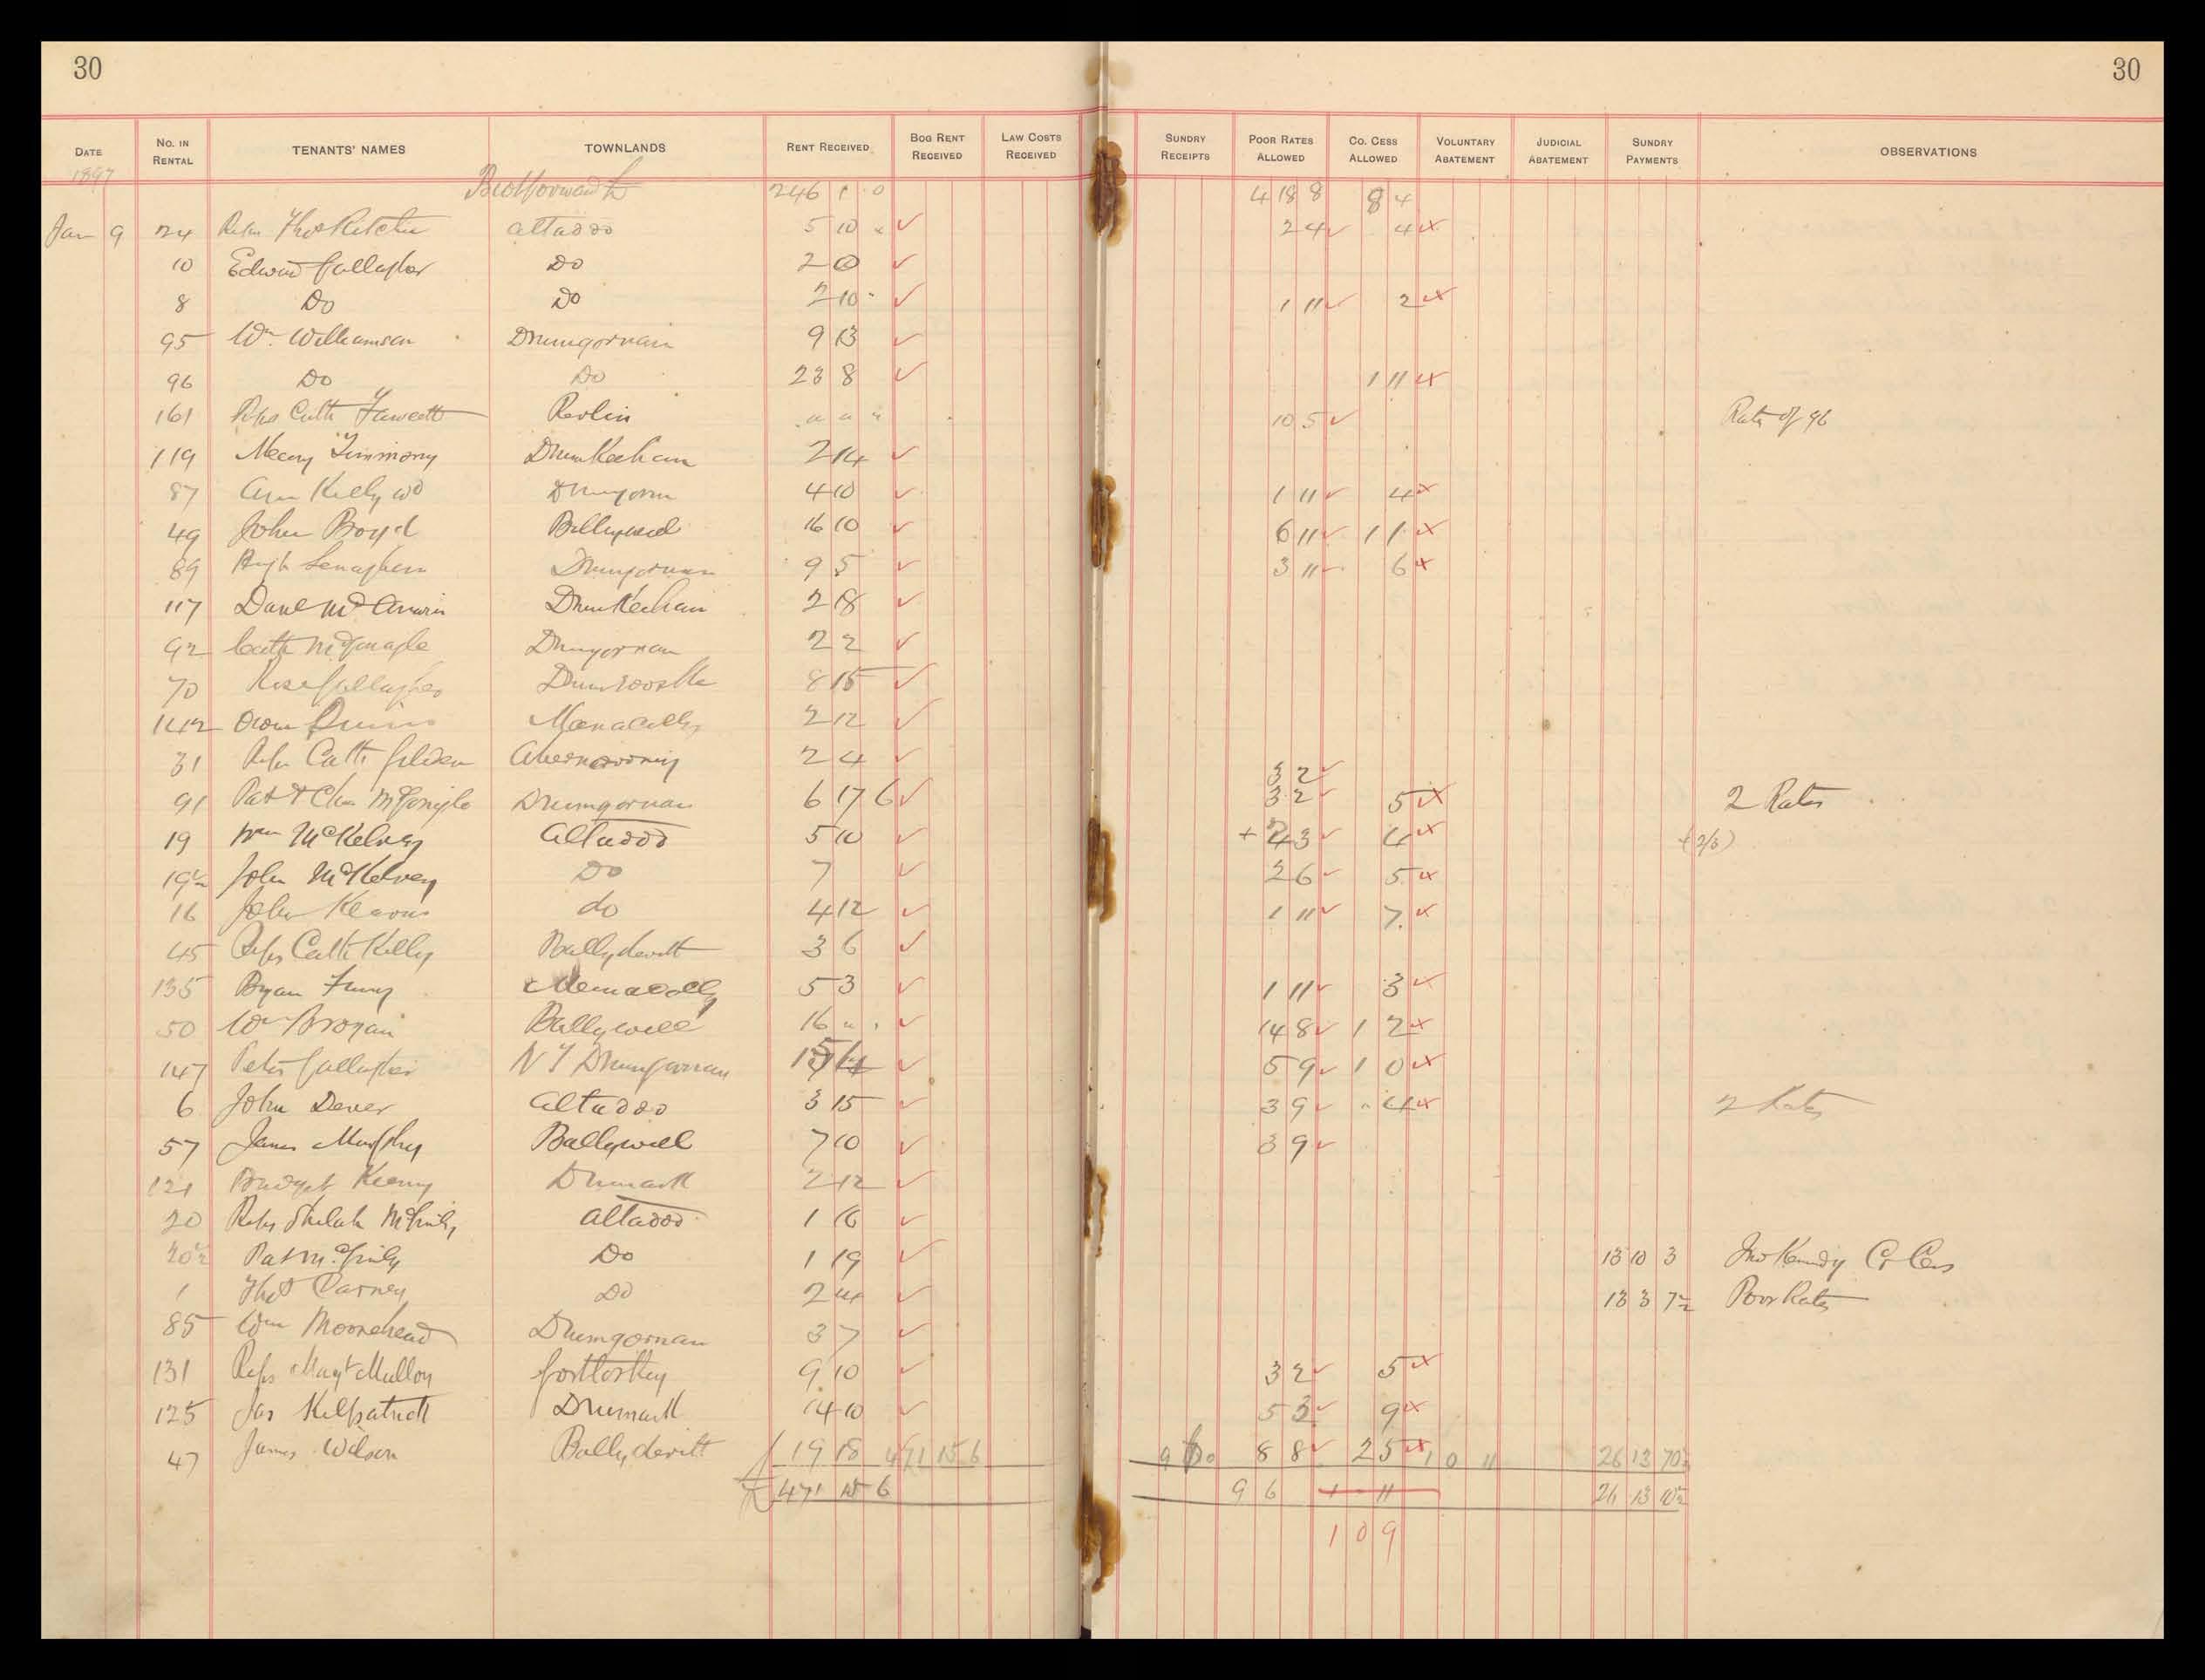 30 30
DATE No. IN RENTAL TENANTS' NAMES TOWNLANDS RENT RECEIVED BOG RENT RECEIVED LAW COSTS RECEIVED SUNDRY RECEIPTS POOR RATES ALLOWED CO. CESS ALLOWED VOLUNTARY ABATEMENT JUDICIAL ABATEMENT SUNDRY PAYMENTS OBSERVATIONS
1897
246 1 0 4 18 8 8 4
Jan 9 24 Reps Thos Ritchie Altadoo 5 10 2 4 4
10 Edward Gallagher Do 2 0
8 Do Do 2 10 1 11 2
95 Wm Williamson Drumgornan 9 13
96 Do Do 23 8 1 11
161 Reps Cath Fawcett Revlin " " " 10 5 Rate of 96
119 Timmony Drumkeehan 2 14
87 Ann Kelly wd 4 10 1 11 4
49 John Boyd Ballyweel 16 10 6 11 1 1
89 Hugh Drumgornan 9 5 3 11 6
117 Danl Drumkeehan 2 18
92 Cath McGonagle Drumgornan 2 2
70 Rose Gallagher 8 15
142 Owen 2 12
31 Reps Cath 2 4 3 2
91 Pat & McGonigle Drumgornan 6 17 6 3 2 5 2 Rates
19 Wm McKelvey Altadoo 5 10 + 3 4 (2/3)
19½ John McKelvey Do 7 2 6 5
16 John Kearns do 4 12 1 11 7
45 Reps Cath Kelly Ballydevitt 3 6
135 Bryan 5 3 1 11 3
50 Wm Brogan Ballyweel 16 " " 14 8 1 2
147 Peter Gallagher N T Drumgornan 5 9 1 0
6 John Dever Altadoo 3 15 3 9 " 4 2 Rates
57 James Murphy Ballyweel 7 10 3 9
121 Bridget Keeny Drumark 2 12
20 Reps Shelah McGinly Altadoo 1 16
20½ Pat McGinly Do 1 19 13 10 3 Jno Kennedy Co Cess
1 Thos Carney Do 2 4 13 3 7½ Poor Rates
85 Wm Moorehead Drumgornan 3 7
131 Reps Margt Mullon 9 10 3 2 5
125 Jas Kilpatrick Drumark 14 10 5 3 9
47 James Wilson Ballydevitt 19 18 471 15 6 9 6 0 8 8 2 5 1 0 11 26 13 10½
£ 471 15 6 9 6 1 11 26 13 10½
1 0 9